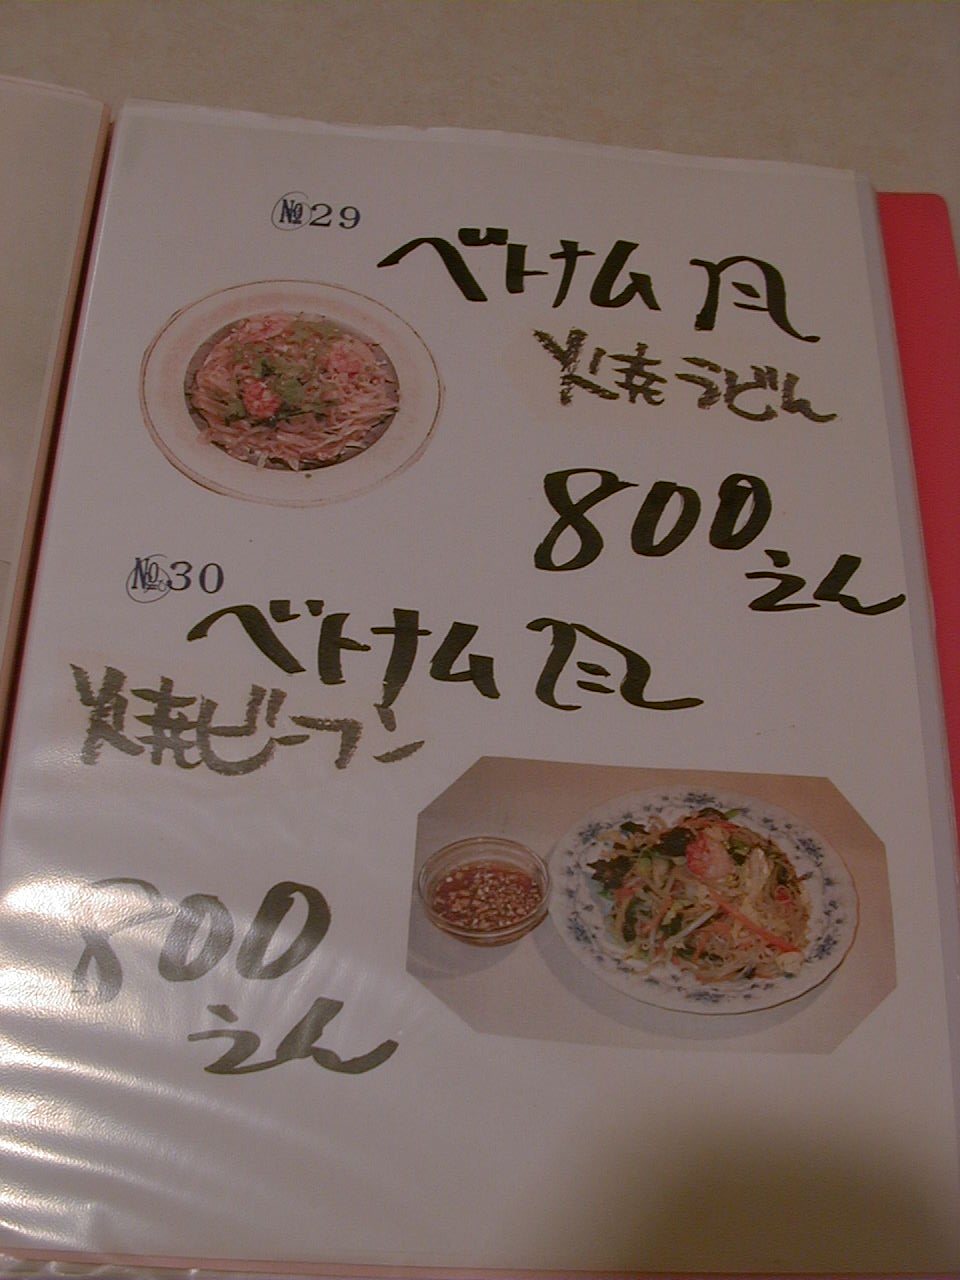 №29
ベトナム風
焼うどん
800
えん
№30
ベトナム風
焼ビーフン
800
えん